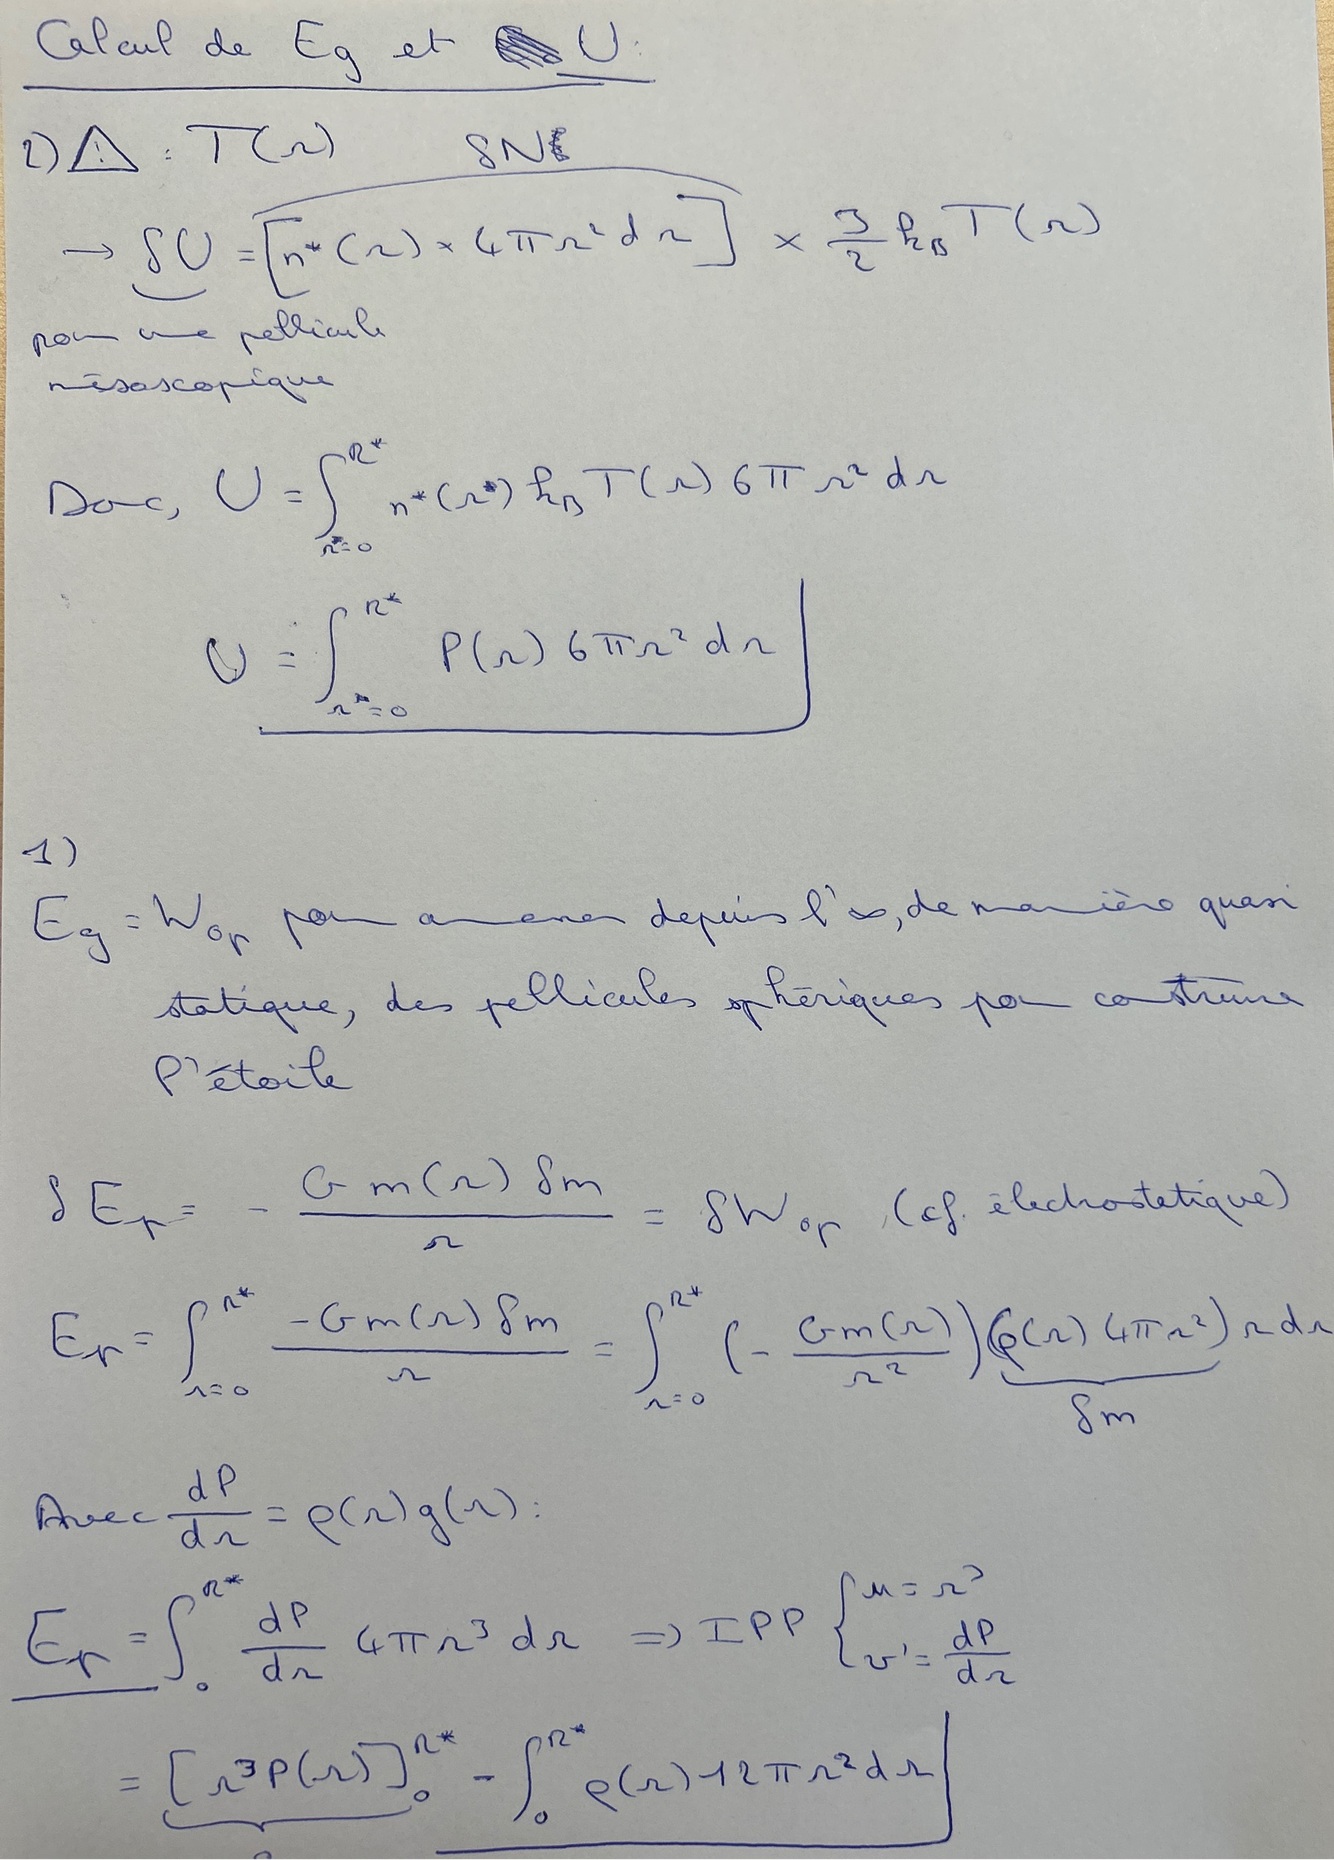 Calcul de Eg et U :
2) ⚠ : T(r) δN
→ δU = [n*(r) × 4πr²dr] × 3/2 k_B T(r)
pour une pellicule
mésoscopique
Donc, U = ∫_{r*=0}^{R*} n*(r*) k_B T(r) 6πr² dr
U = ∫_{r*=0}^{R*} P(r) 6πr² dr
1)
Eg = W_op pour amener depuis l'∞, de manière quasi
statique, des pellicules sphériques pour construire
l'étoile
δE_p = - G m(r) δm / r = δW_op (cf. électrostatique)
E_p = ∫_{r=0}^{R*} -G m(r) δm / r = ∫_{r=0}^{R*} (- G m(r) / r²) (ρ(r) 4πr²) r dr
δm
Avec dP/dr = ρ(r)g(r) :
E_p = ∫_0^{R*} dP/dr 4πr³ dr ⇒ IPP { u = r³
v' = dP/dr
= [r³P(r)]_0^{R*} - ∫_0^{R*} ρ(r) 12πr² dr